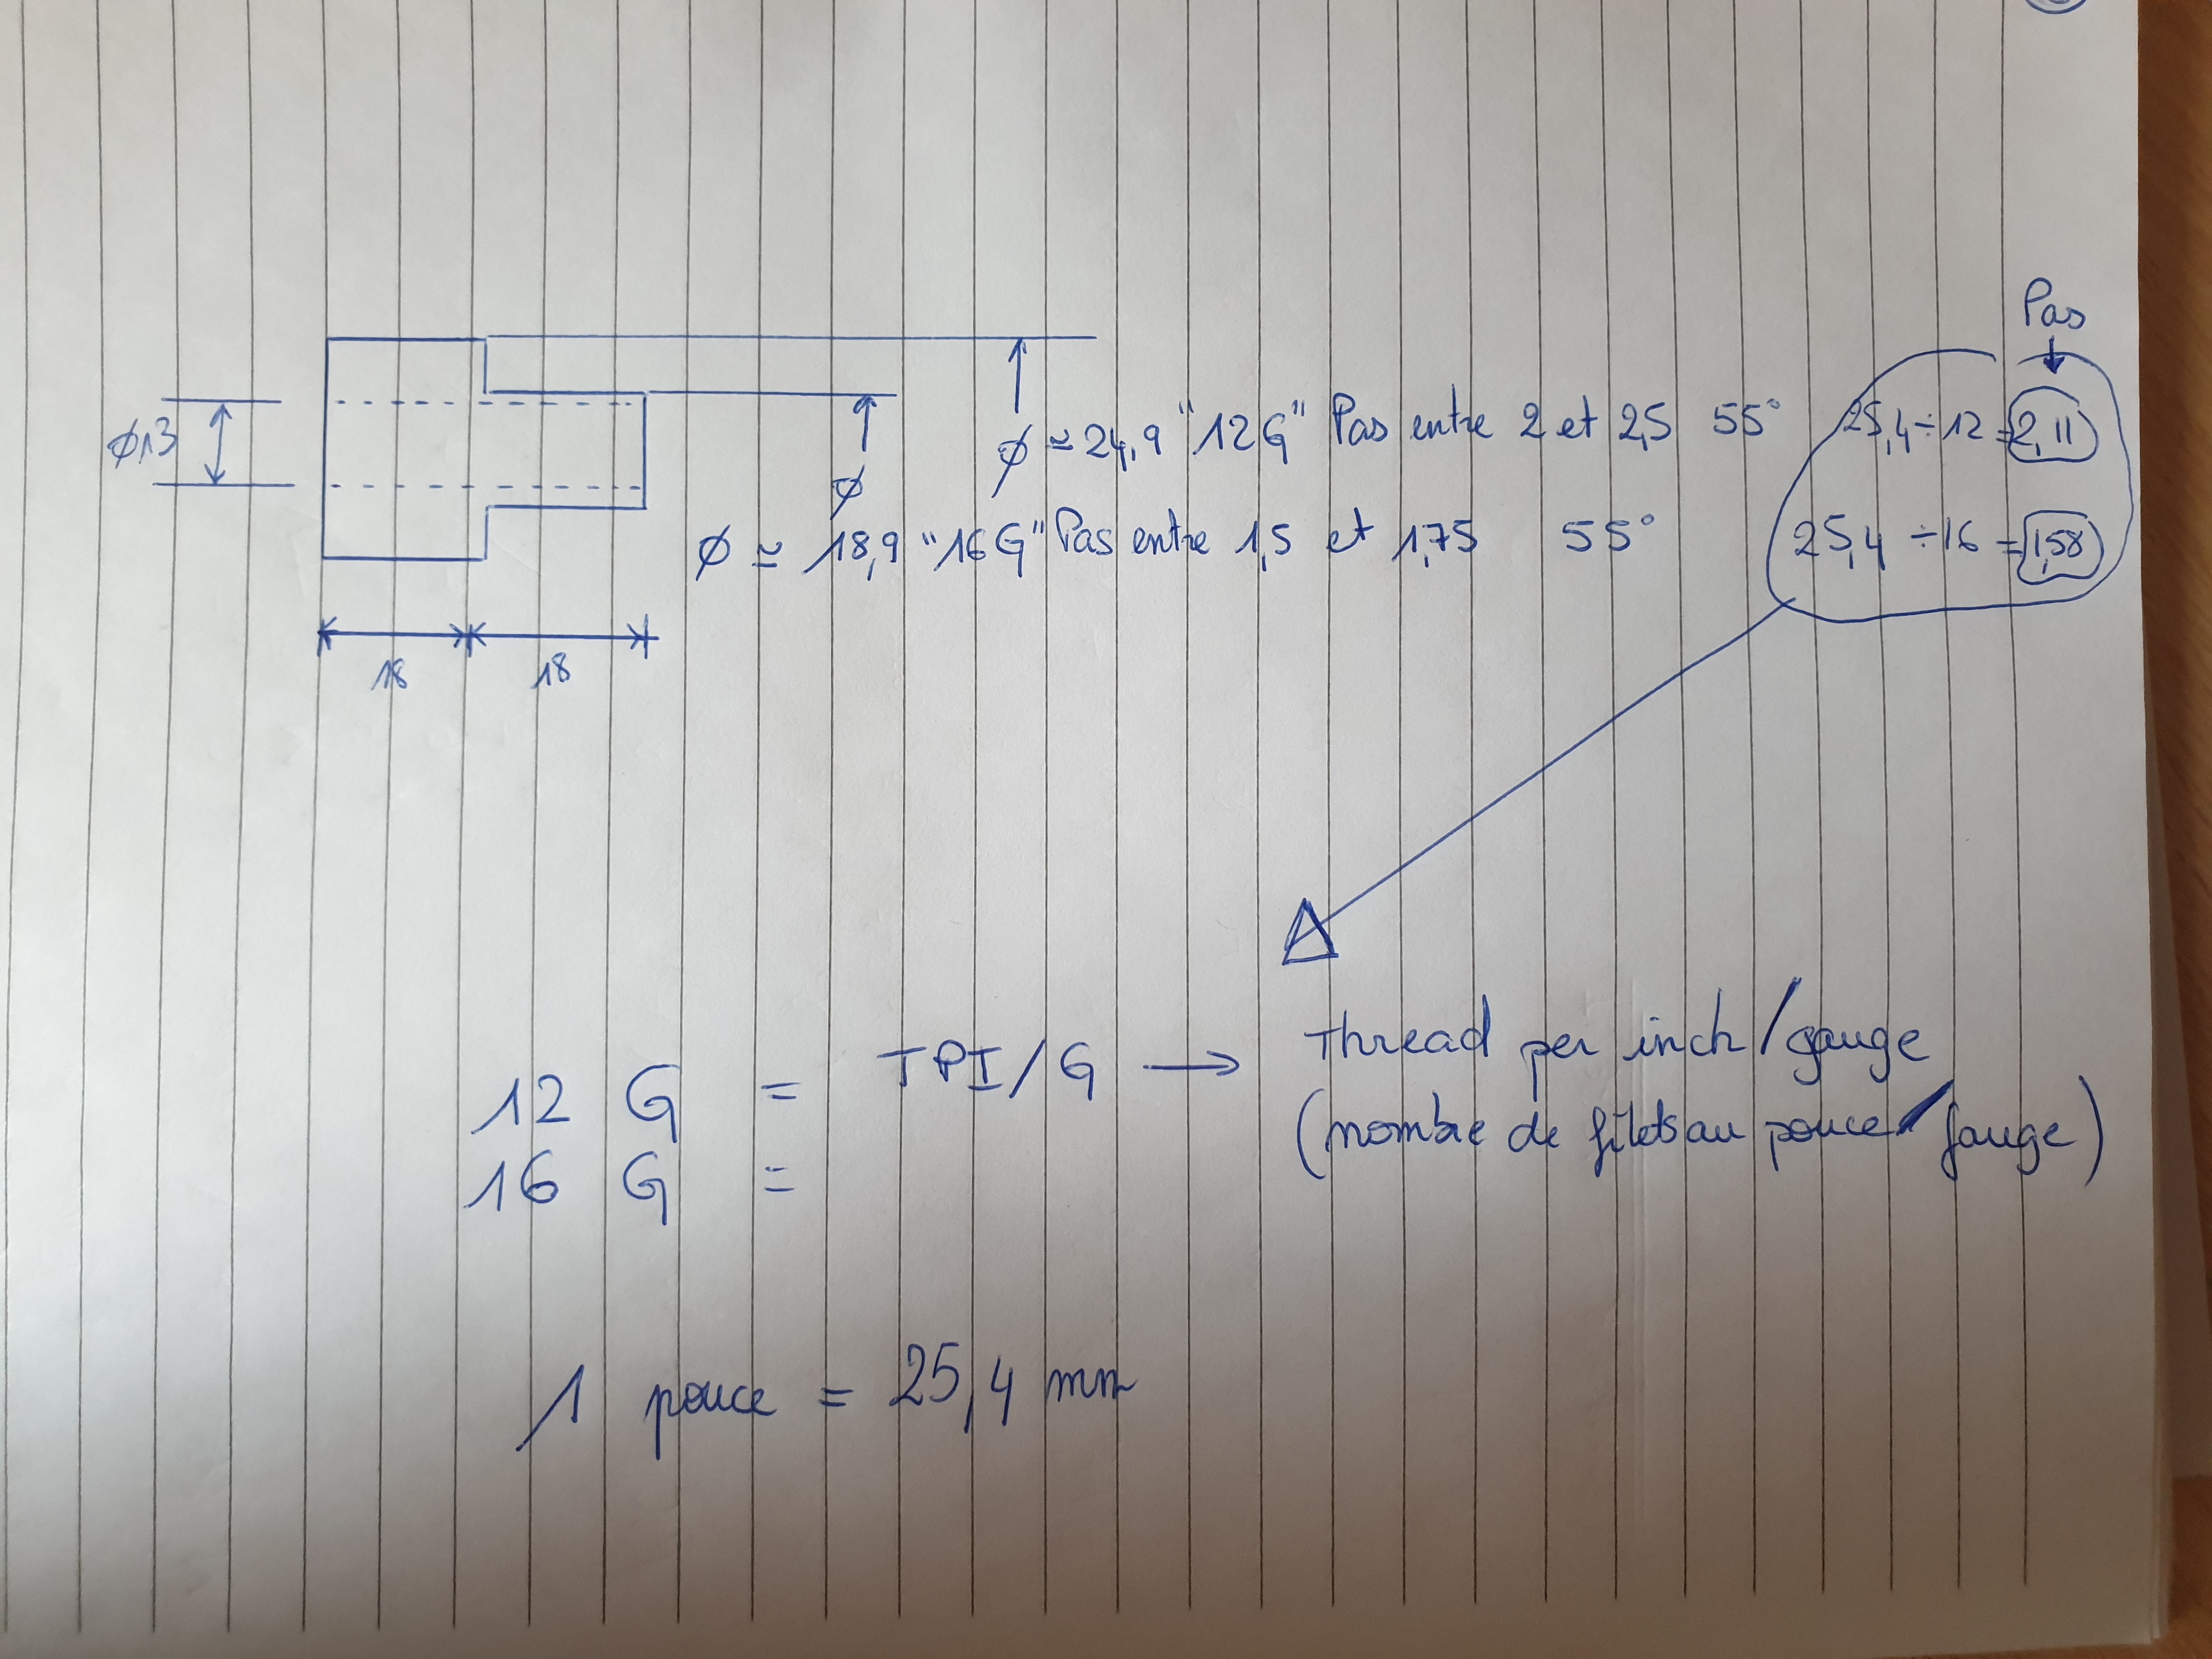 Pas
Ø13
Ø ≃ 24,9 "12G" Pas entre 2 et 2,5 55° 25,4 ÷ 12 = 2,11
Ø
Ø ≃ 18,9 "16G" Pas entre 1,5 et 1,75 55° 25,4 ÷ 16 = 1,58
18 18
12 G = TPI/G → Thread per inch/gauge
16 G = (nombre de filets au pouce/jauge)
1 pouce = 25,4 mm